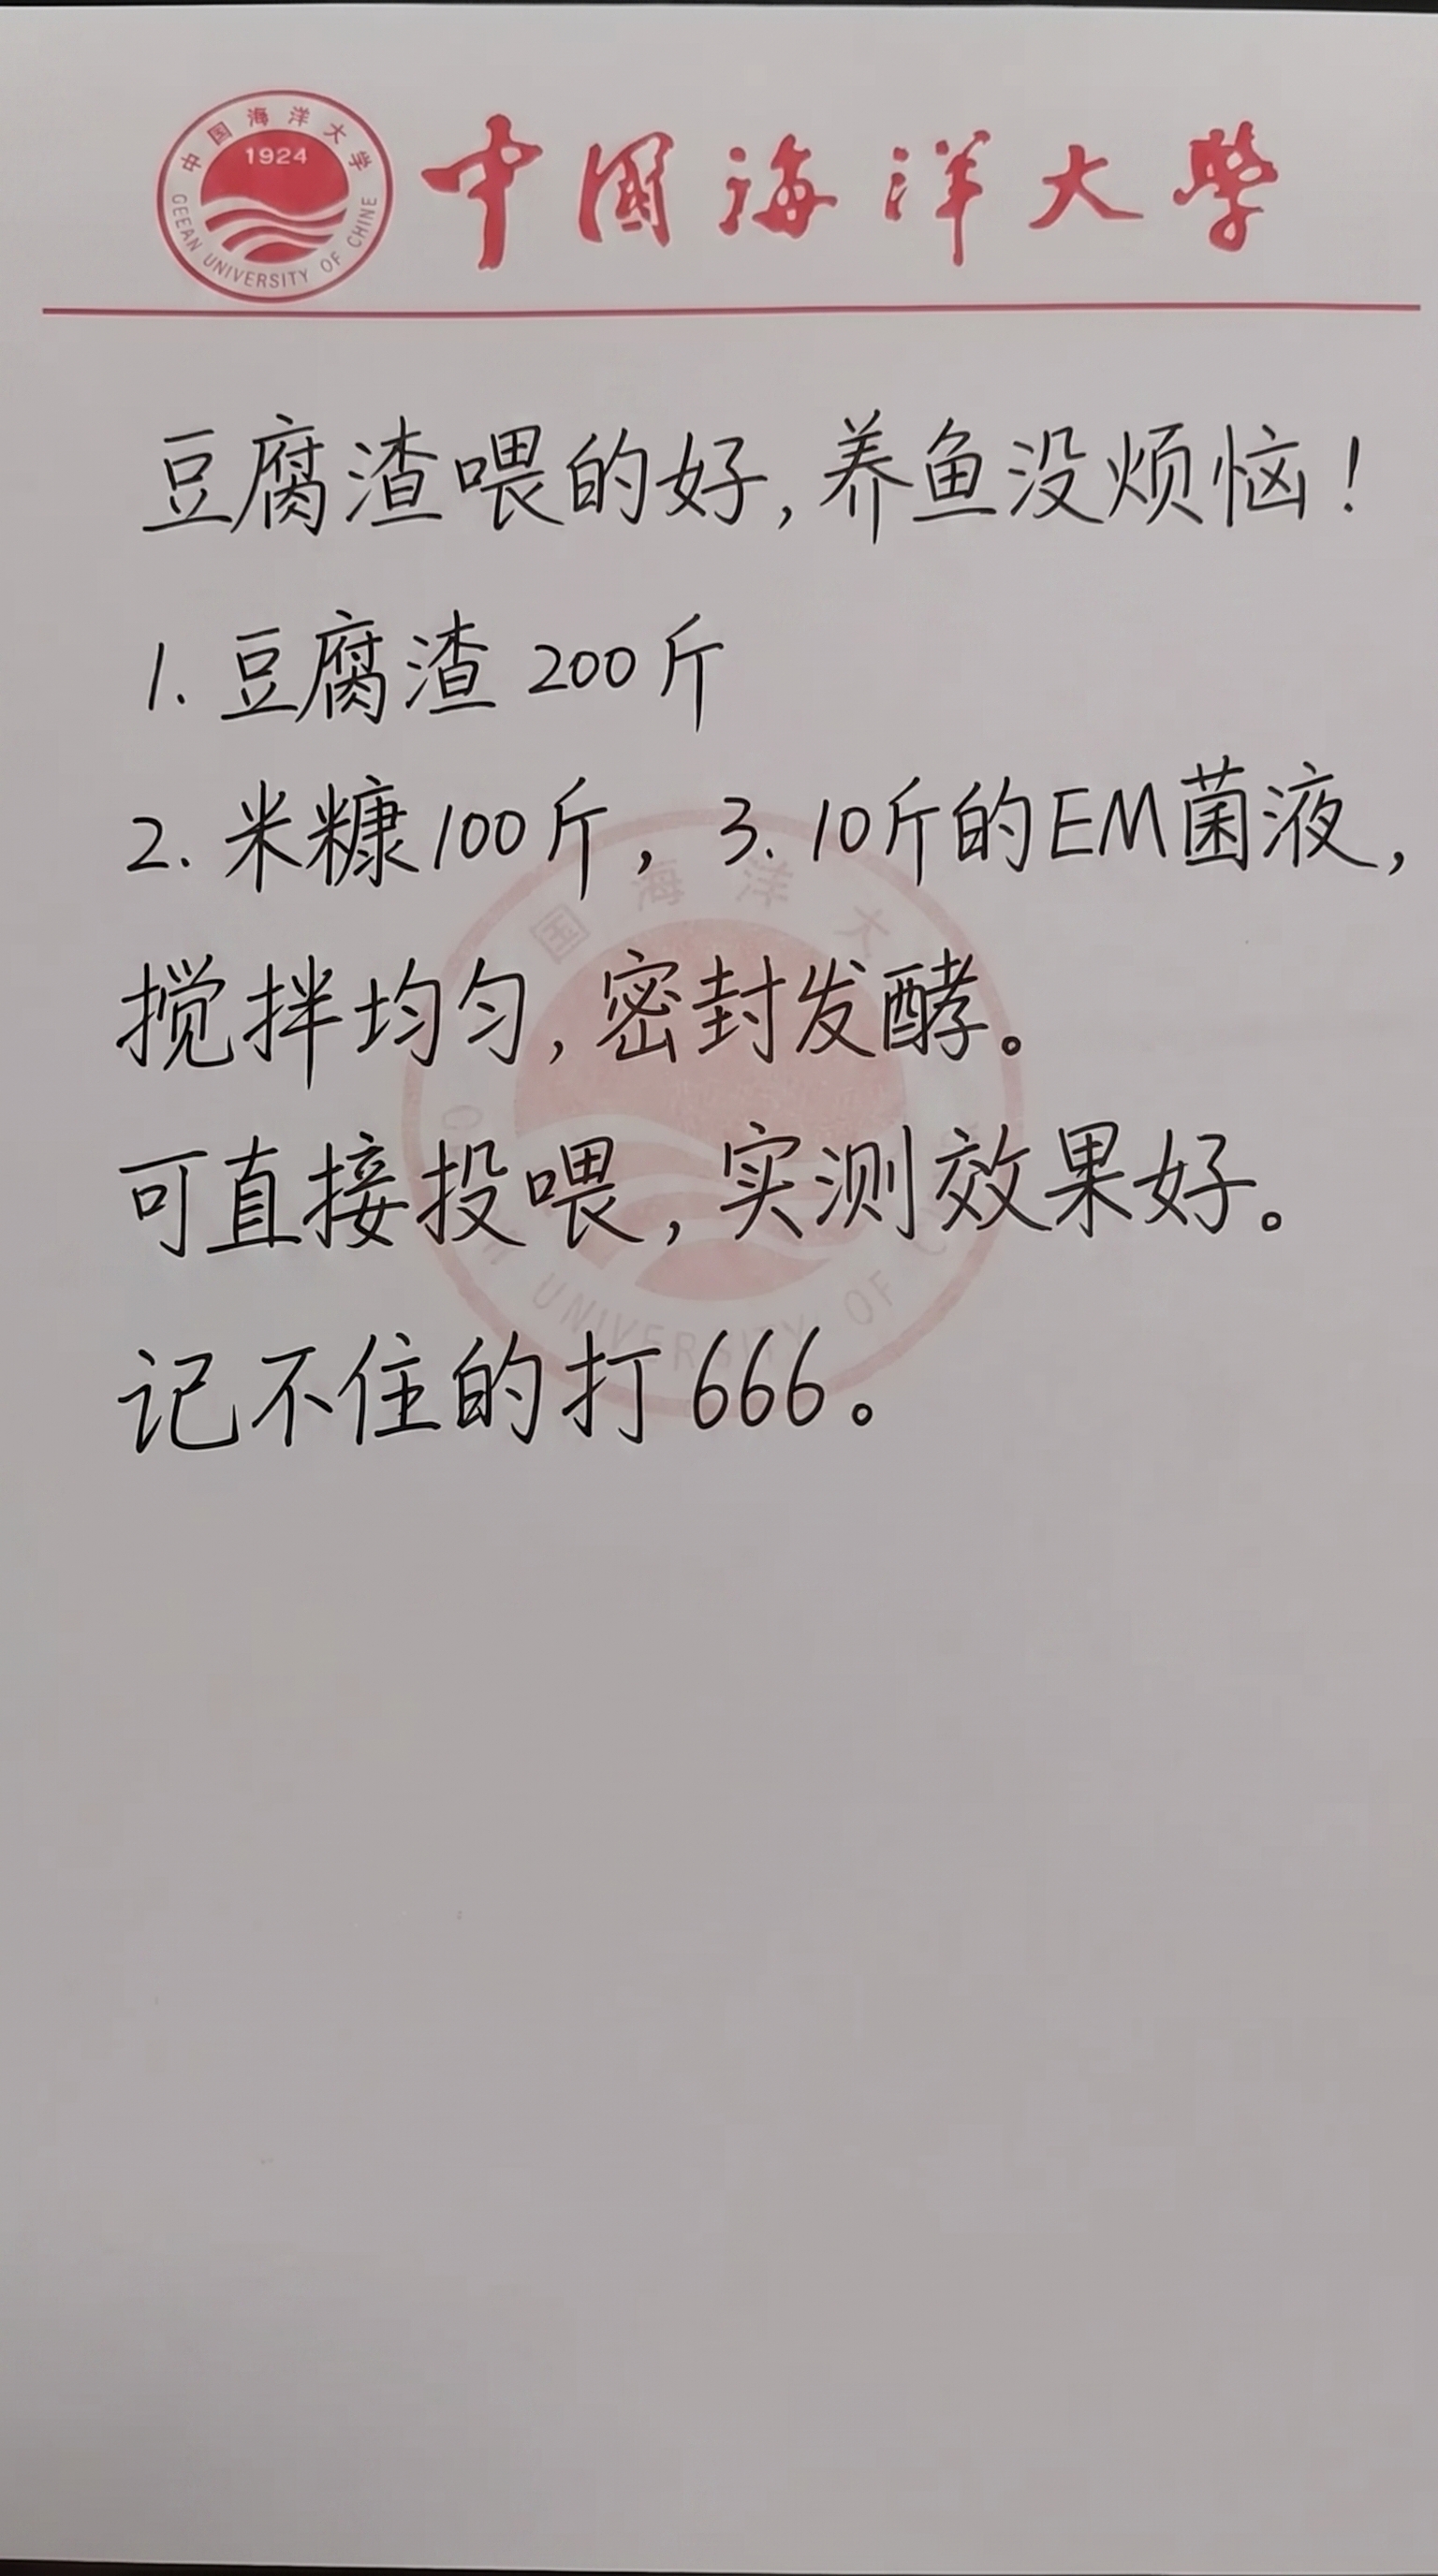 中国海洋大学
1924
GEEAN UNIVERSITY OF CHINE
中國海洋大學
豆腐渣喂的好,养鱼没烦恼!
1.豆腐渣 200斤
2.米糠100斤, 3.10斤的EM菌液,
搅拌均匀,密封发酵。
可直接投喂,实测效果好。
记不住的打666。
国海洋大
UNIVERSITY OF